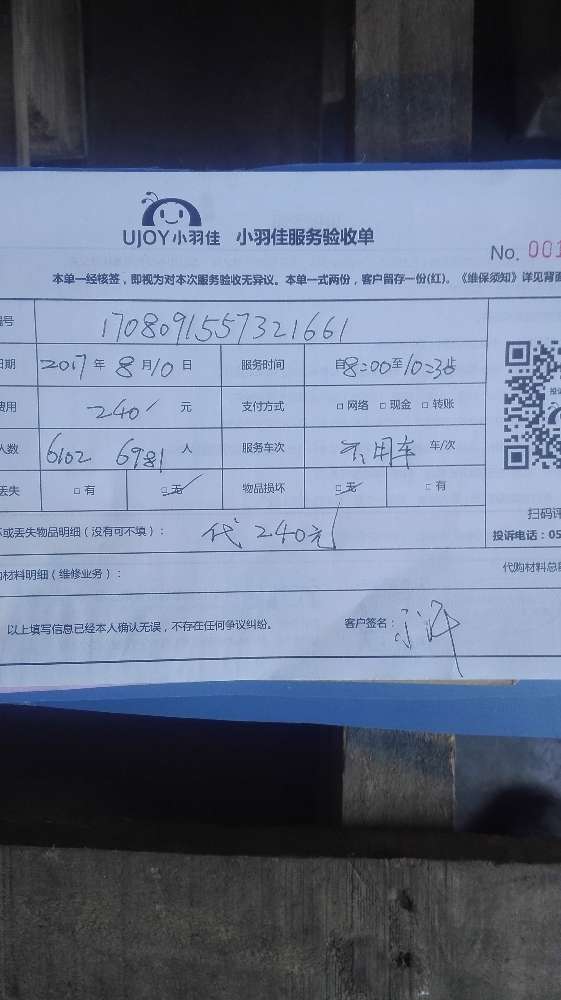 UJOY小羽佳 小羽佳服务验收单
No. 001
本单一经核签，即视为对本次服务验收无异议。本单一式两份，客户留存一份(红)。《维保须知》详见背面
号 1708091557321661
日期 2017 年 8 月 10 日 服务时间 自8:00至10:36止
费用 240 元 支付方式 □ 网络 □ 现金 □ 转账
人数 6102 6981 人 服务车次 不用车 车/次
丢失 □ 有 □ 无 物品损坏 □ 无 □ 有
扫码评
或丢失物品明细（没有可不填）： 代 240元
投诉电话：05
材料明细（维修业务）： 代购材料总
以上填写信息已经本人确认无误，不存在任何争议纠纷。 客户签名：